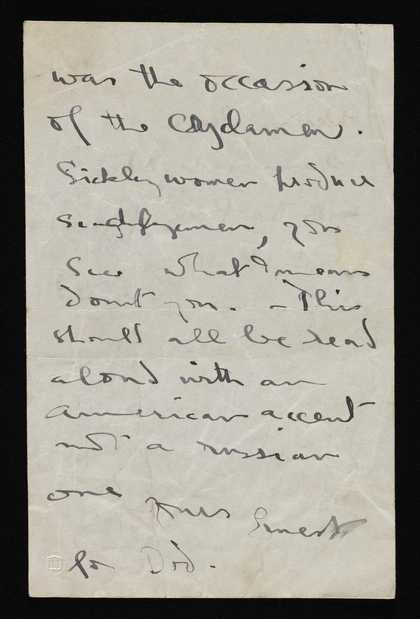 was the occasion
of the Cyclamen.
Sickly women produce
men, you
see what I mean
don't you. - This
should all be read
aloud with an
American accent
not a russian
one yours Ernest
Dod.